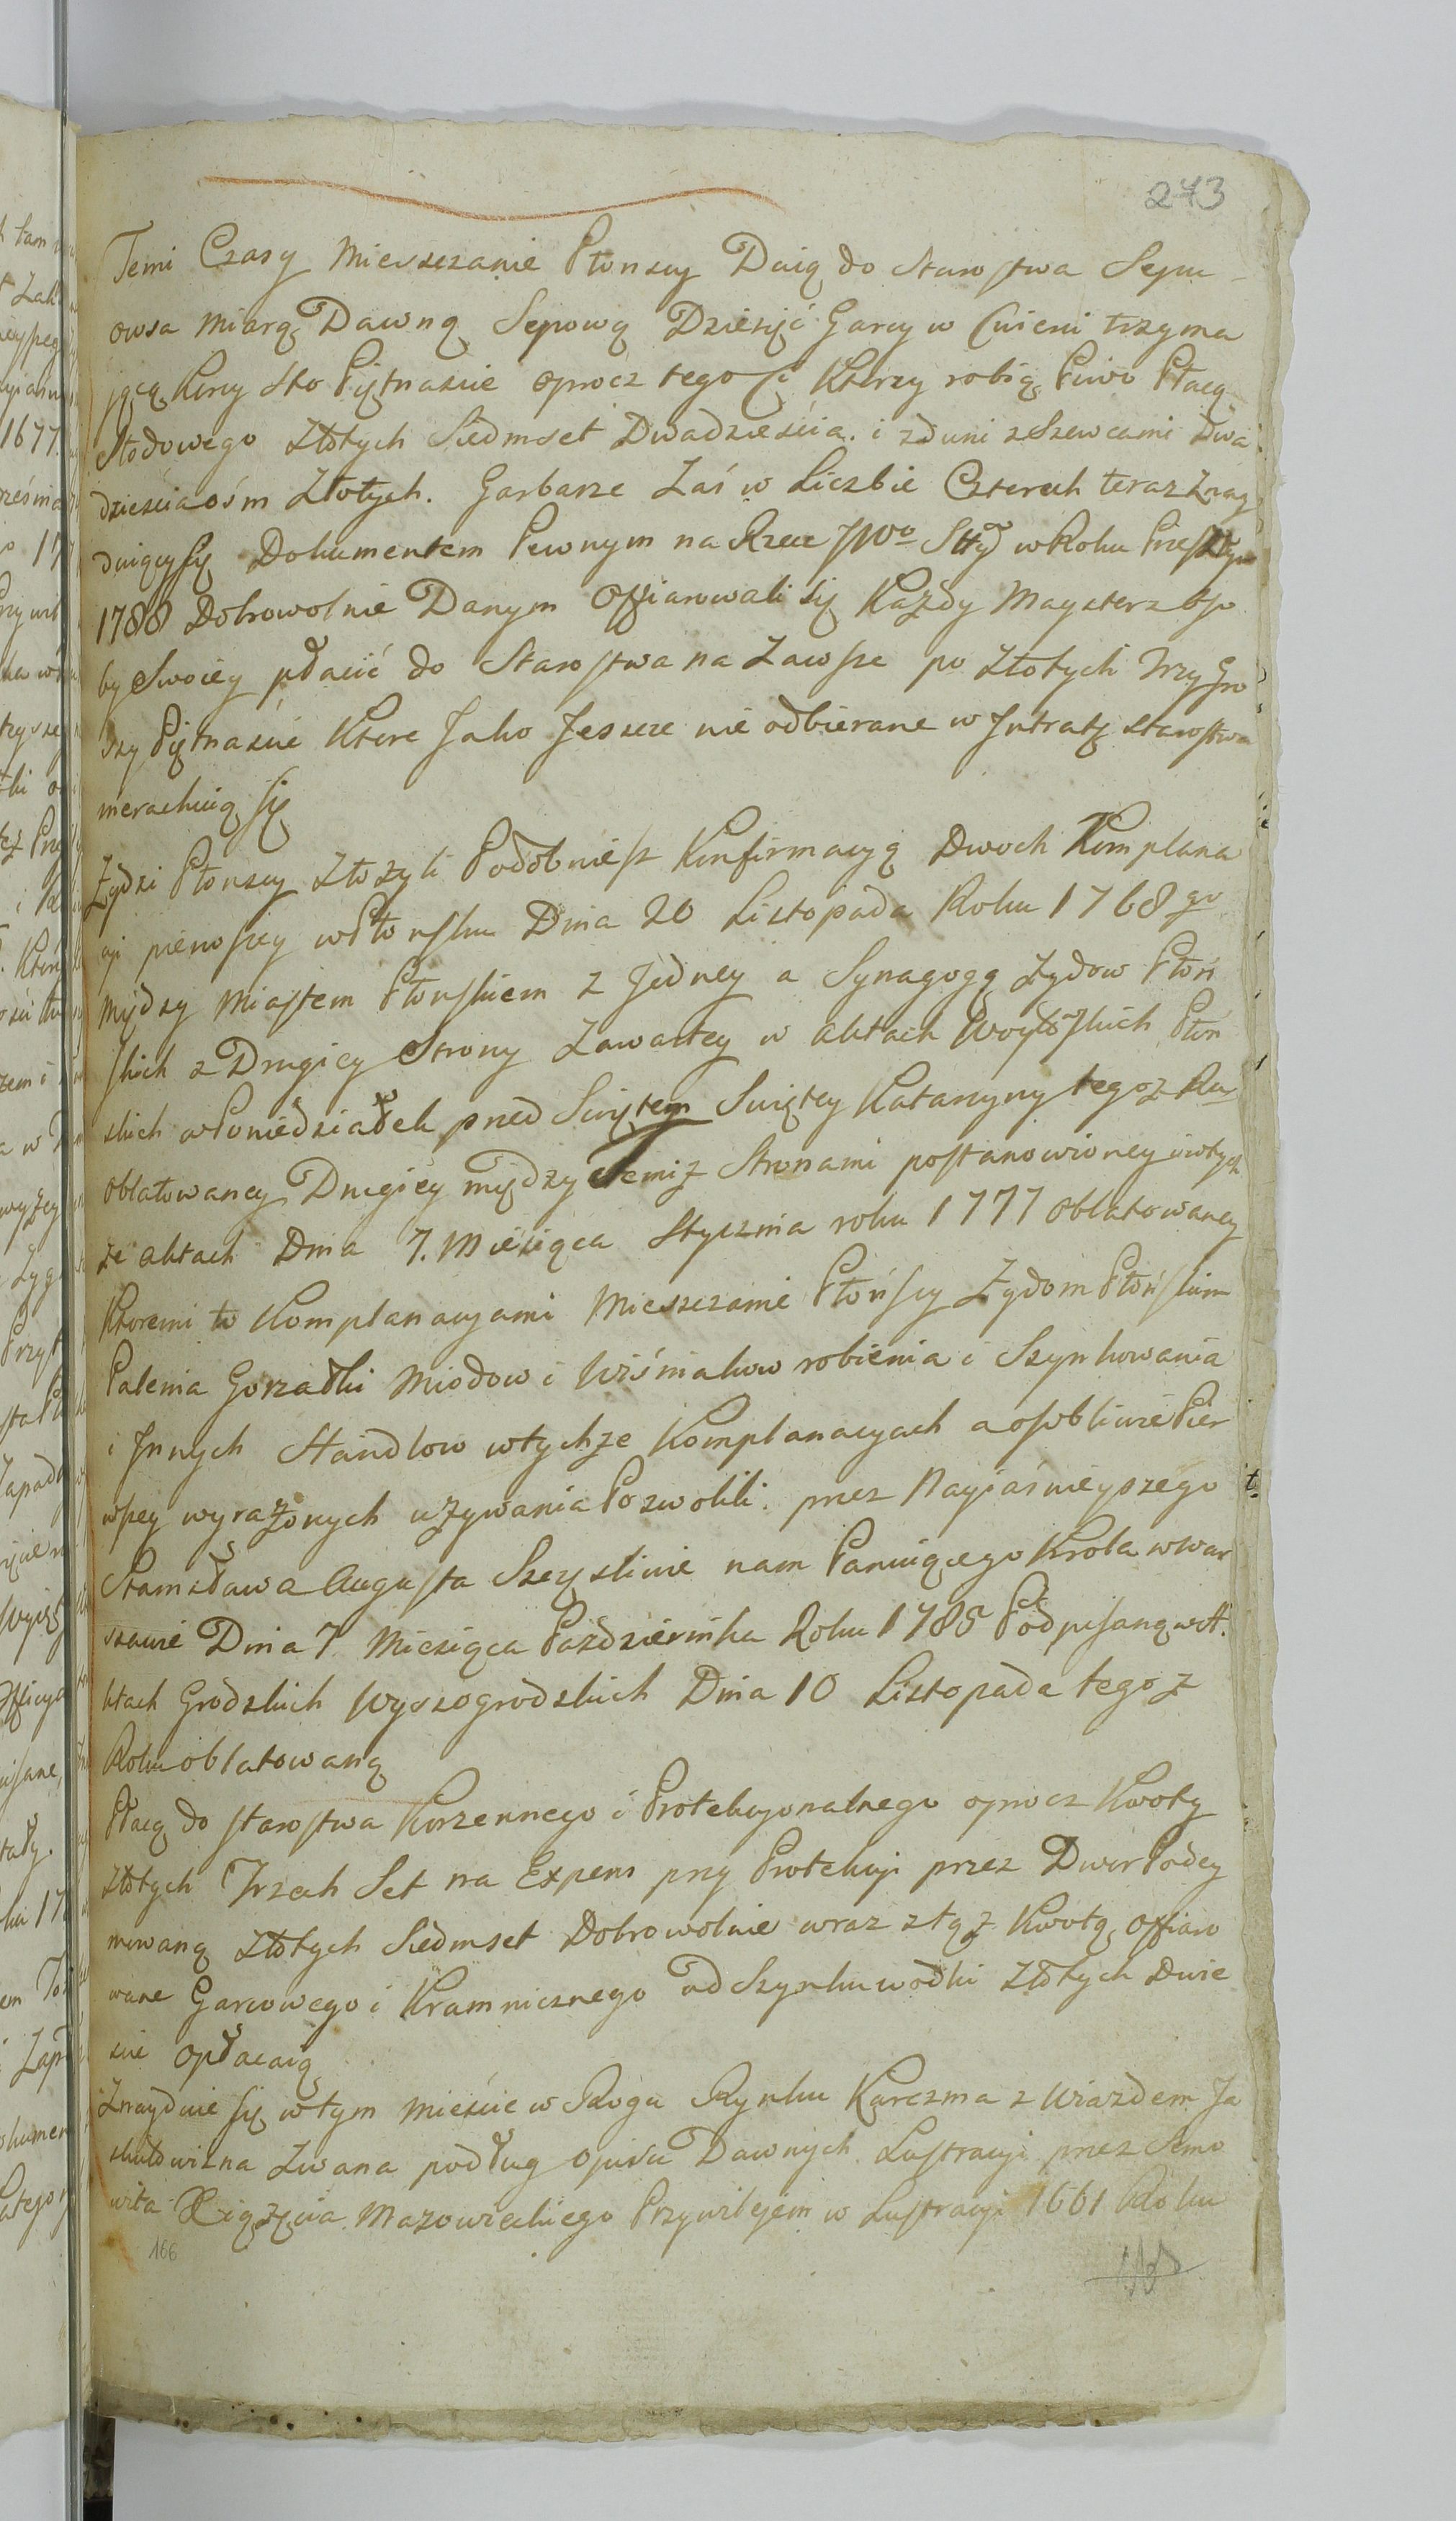 273
Temi Czasy Miesszczanie Płonscy Daią do Starostwa Sepu
owsa miarą Dawną Sepową Dziesięć Garcy w Cwierci trzyma
jącą Korcy Sto Piętnaście oprocz tego Ci Ktorzy robią Piwo Płacą
Słodowego Złotych Siedmset Dwadzieścia. i zduni z Szewcami dwa
dzieścia ośm Złotych. Garbarze Zaś w Liczbie Czterech teraz Znay
duiący się Dokumentem Pewnym na Rzecz JWo Stty w Roku Przeszłym
1788 Dobrowolnie Danym Offiarowali się Każdy Mayster z oso
by Swoiey płacić do Starostwa na Zawsze po Złotych Trzy Gro
szy Piętnaście Ktore Jako Jeszcze nie odbierane w Jntratę starostwa
nierachuią się
Żydzi Płonscy Złożyli Podobnieſz Konfirmacyą Dwoch Komplana
cyi pierwszey w Płonsku Dnia 20 Listopada Roku 1768go
między Miastem Płonskiem z Jedney a Synagogą Zydow Płoń
skich z Drugiey Strony Zawartey w Aktach Woytoſkich Płoń
skich w Poniedziałek przed Swiętem Swiętey Katarzyny tegoż Ru
oblatowaney Drugiey między temiż Stronami postanowioney i w tych
że aktach Dnia 7. Miesiąca Stycznia roku 1777 oblatowaney
Ktoremi to Komplanacyami Mieszczanie Płońscy Żydom Płońskim
Palenia Gorzałki Miodow i Wiśniakow robienia i Szynkowania
i Jnnych Handlow w tychże Komplanacyach a osobliwie Pier
wszey wyrażonych używania Pozwolili. przez Nayiaśnieyszego
Stanisława Augusta Szczęsliwie nam Panuiącego Krola w War
szawie Dnia 7 Miesiąca Października Roku 1785 Podpisaną w A
ktach Grodzkich Wyszogrodzkich Dnia 10 Listopada tegoż
Roku oblatowaną
Płacą do starostwa Korzennego i Protekcyonalnego oprocz Kwoty
złotych Trzech Set na Expens przy Protekcyi przez Dwor Podey
mowaną złotych Siedmset Dobrowolnie wraz z tąż Kwotą offiaro
wane Garcowego i Kramnicznego od Szynku wodki Złotych dwie
scie opłacaią
Znayduie się w tym mieście w Rogu Rynku Karczma z Wiazdem Ja
skułowizna Zwana podług opisu Dawnych Lustracyi przez Semo
wita Xiążęcia Mazowieckiego Przywilejem w Lustracyi 1661 Roku
166